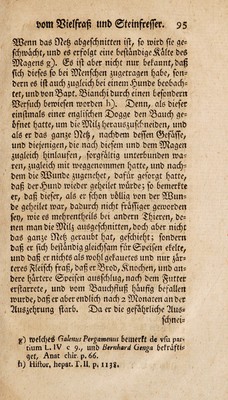 vom Vielfraß und Steinfresser. 95
Wenn das Netz abgeschnitten ist, so wird sie ge-
schwächt, und es erfolgt eine beständige Kälte des
Magens g). Es ist aber nicht nur bekannt, daß
sich dieses so bei Menschen zugetragen habe, son-
dern es ist auch zugleich bei einem Hunde beobach-
tet, und von Bapt. Biancki durch einen besondern
Versuch bewiesen worden h). Denn, als dieser
einstmals einer englischen Dogge den Bauch ge-
öfnet hatte, um die Milz herauszuschneiden, und
als er das ganze Netz, nachdem dessen Gefässe,
und diejenigen, die nach diesem und dem Magen
zugleich hinlaufen, sorgfältig unterbunden wa-
ren, zugleich mit weggenommen hatte, und nach-
dem die Wunde zugenehet, dafür gesorgt hatte,
daß der Hund wieder geheilet würde; so bemerkte
er, daß dieser, als er schon völlig von der Wun-
de geheilet war, dadurch nicht frässiger geworden
sey, wie es mehrentheils bei andern Thieren, de-
nen man die Milz ausgeschnitten, doch aber nicht
das ganze Netz geraubt hat, geschieht; sondern
daß er sich beständig gleichsam für Speisen ekelte,
und daß er nichts als wohl gekauetes und nur zär-
teres Fleisch fraß, daß er Brod, Knochen, und an-
dere härtere Speisen ausschlug, nach dem Futter
erstarrete, und vom Bauchfluß häufig befallen
wurde, daß er aber endlich nach 2 Monaten an der
Auszehrung starb. Da er die gefährliche Aus-
schnei-
g) welches Galenus Pergamenus bemerkt de usu par-
tium L. IV c 9., und Bernhard Genga bekräfti-
get, Anat chir p. 66.
h) Histor. hepat. T. II. p. 1138.